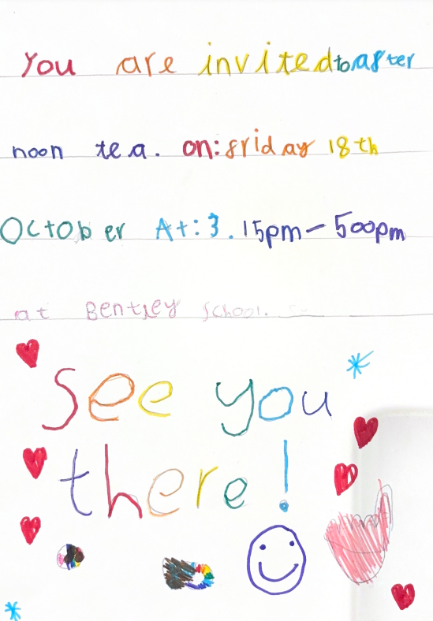 You are invited to after
noon tea. on: friday 18th
October At: 3.15pm - 500pm
at Bentley School.
See you
there!